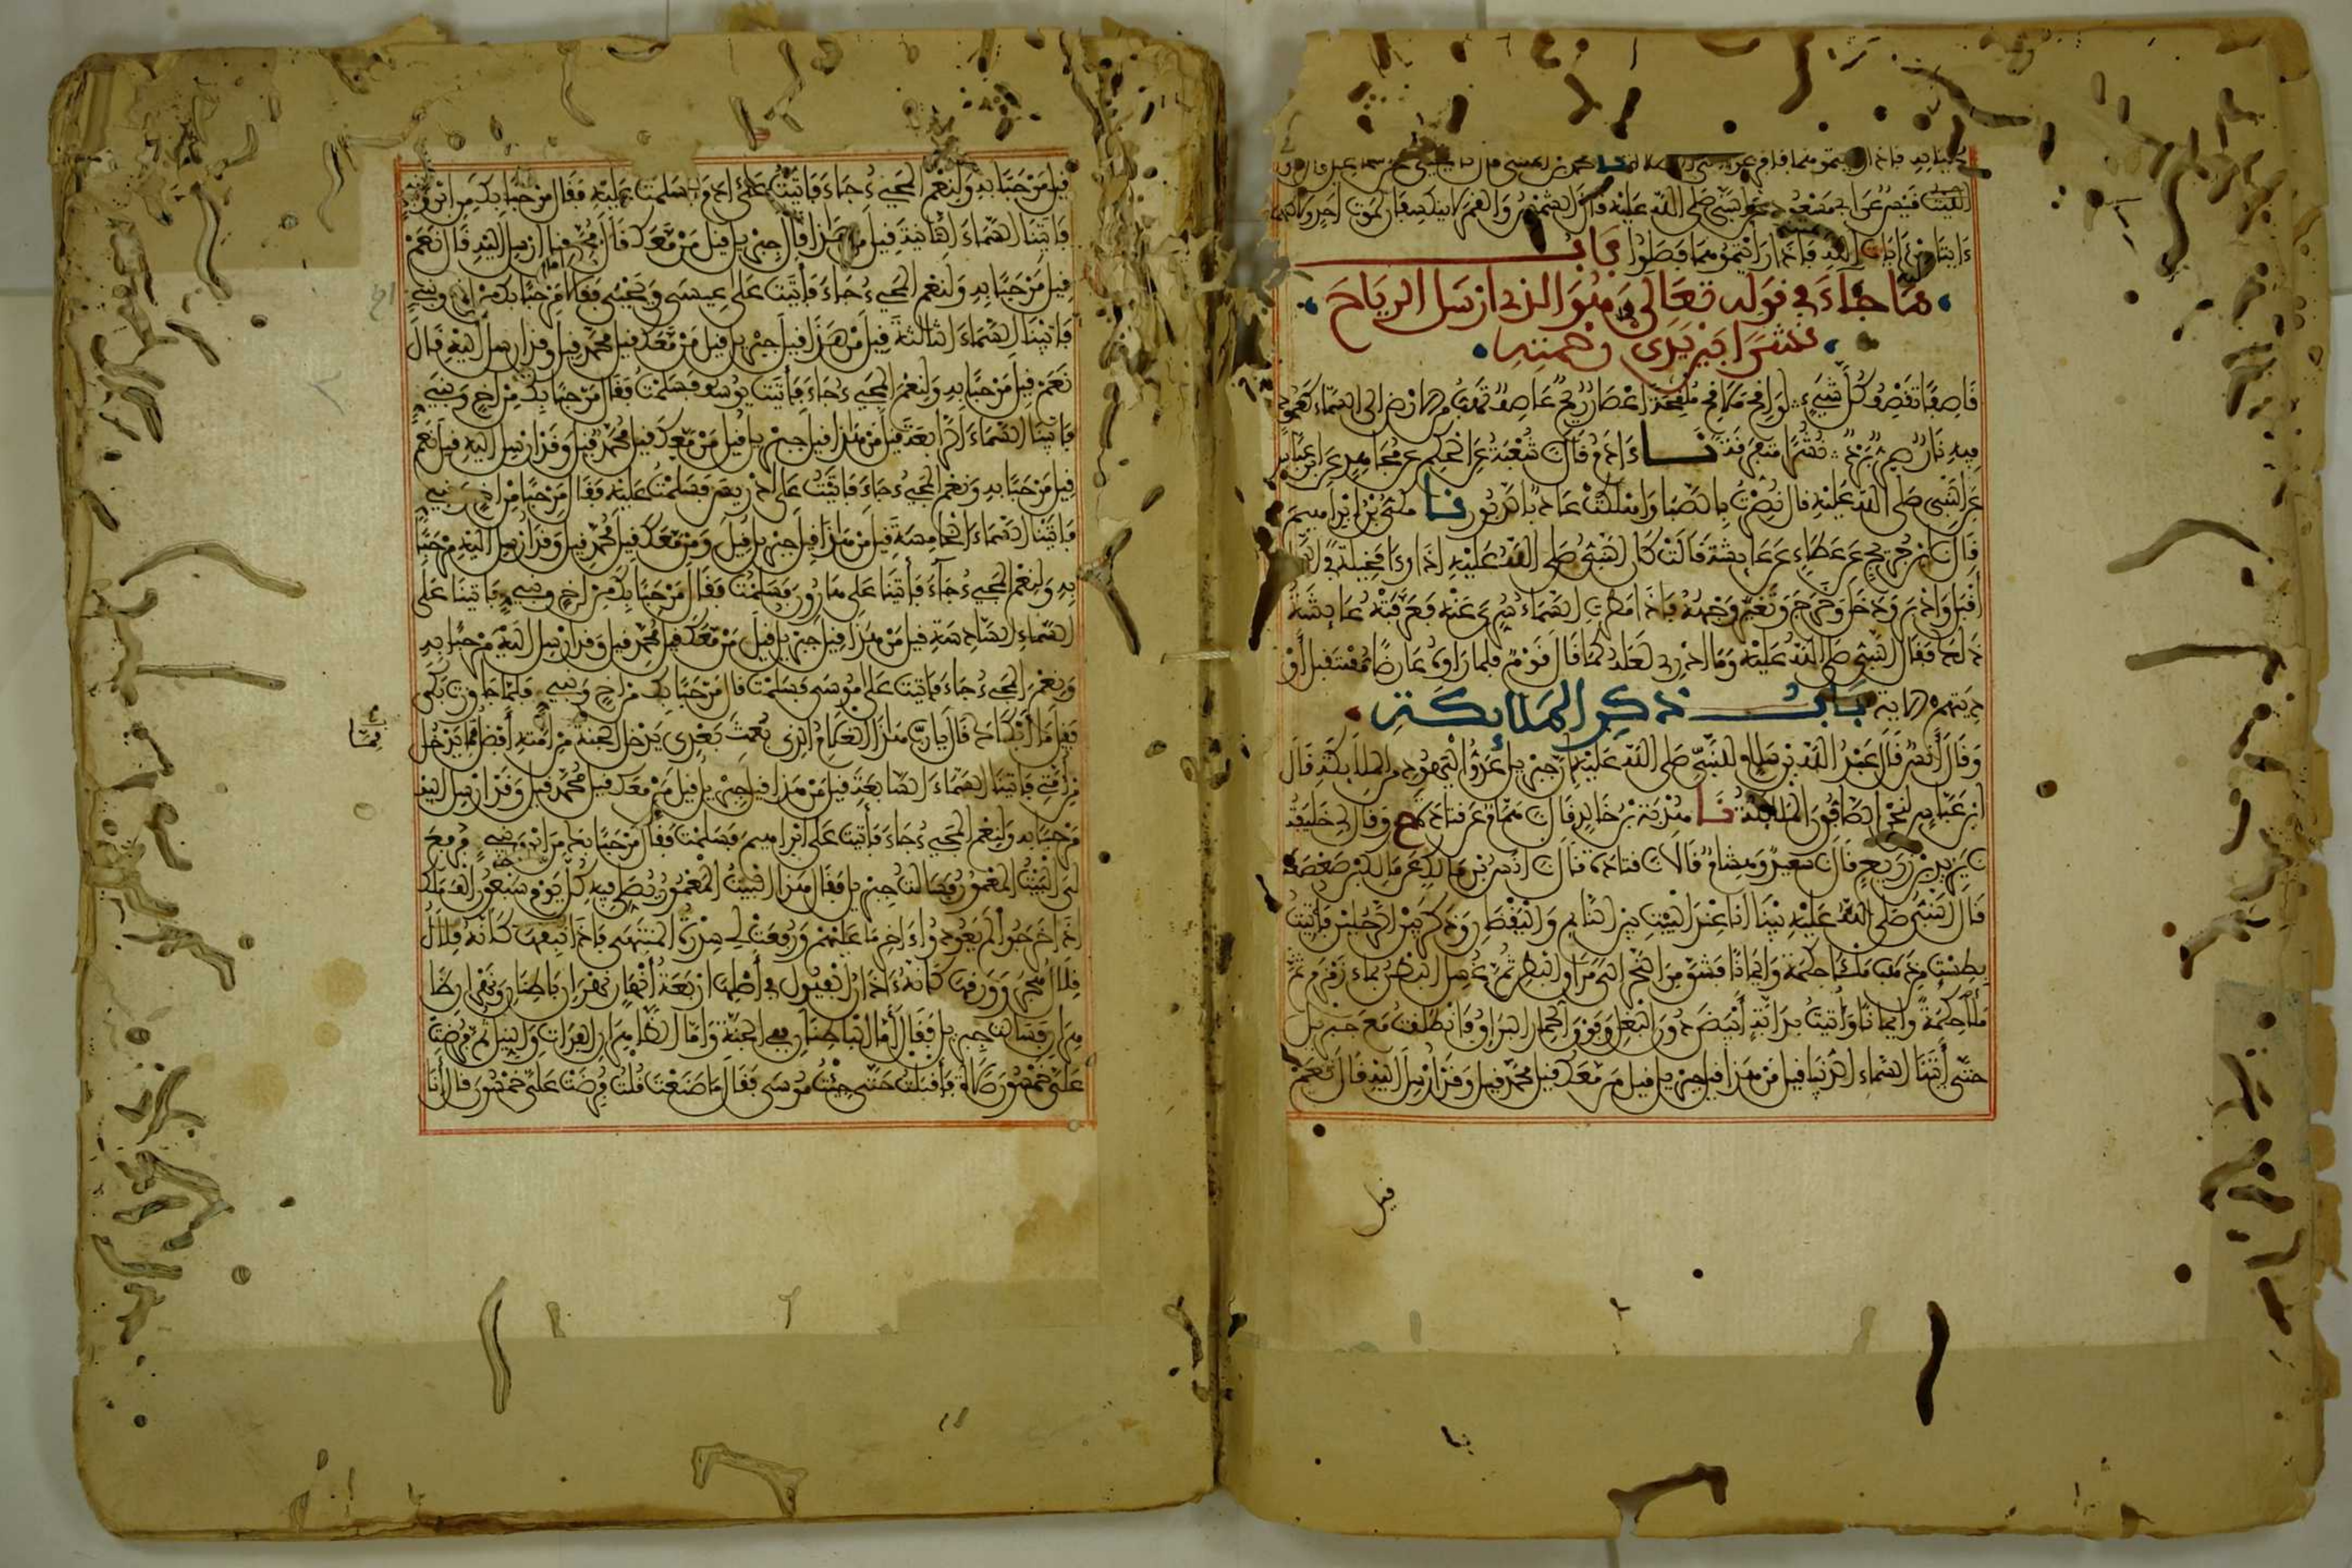 رأيتموه فإذا رأيتموهما فافزعوا
قيس عن أبي مسعود عن النبي صلى الله عليه قال الشمس والقمر لا ينكسفان لموت أحد ولا لحياته
ءايتان من ءايات الله فإذا رأيتموهما فصلوا باب
ما جاء في قوله تعالى وهو الذي أرسل الرياح
نشرا بين يدي رحمته
قاصفا تقصف كل شيء لواقح ملاقح ملقحة إعصار ريح عاصف تهب من الأرض إلى السماء كعمود
فيه نار صر برد نشرا متفرقة نا ءادم قال شعبة عن الحكم عن مجاهد عن ابن عباس
عن النبي صلى الله عليه قال نصرت بالصبا وأهلكت عاد بالدبور نا مكي بن إبراهيم
قال ابن جريج عن عطاء عن عايشة قالت كان النبي صلى الله عليه إذا رءا مخيلة في السماء
أقبل وأدبر ودخل وخرج وتغير وجهه فإذا أمطرت السماء سري عنه فعرفته عايشة
ذلك فقال النبي صلى الله عليه وما أدري لعله كما قال قوم فلما رأوه عارضا مستقبل أو
ديتهم الاية باب ذكر الملايكة
وقال أنس قال عبد الله بن سلام للنبي صلى الله عليه إن جبريل عدو اليهود من الملايكة قال
ابن عباس لنحن الصافون الملايكة نا هدبة بن خالد قال همام عن قتادة ح وقال لي خليفة
يزيد بن زريع قال سعيد وهشام قالا قتادة قال أنس بن مالك عن مالك بن صعصعة
قال النبي صلى الله عليه بينا أنا عند البيت بين النايم واليقظان وذكر بين الرجلين فأتيت
بطست من ذهب ملئا حكمة وإيمانا فشق من النحر إلى مراق البطن ثم غسل البطن بماء زمزم ثم
ملأ حكمة وإيمانا وأتيت بدابة أبيض دون البغل وفوق الحمار البراق فانطلقت مع جبريل
حتى أتينا السماء الدنيا قيل من هذا قيل جبريل قيل من معك قيل محمد قيل وقد أرسل إليه قال نعم
قيل
قيل مرحبا به ولنعم المجيء جاء فأتيت على ءادم فسلمت عليه فقال مرحبا بك من ابن ونبي
فأتينا السماء الثانية قيل من هذا قال جبريل قيل من معك قال محمد قيل أرسل إليه قال نعم
قيل مرحبا به ولنعم المجيء جاء فأتيت على عيسى ويحيى فقالا مرحبا بك من أخ ونبي
فأتينا السماء الثالثة قيل من هذا قيل جبريل قيل من معك قيل محمد قيل وقد أرسل إليه قال
نعم قيل مرحبا به ولنعم المجيء جاء فأتيت يوسف فسلمت فقال مرحبا بك من أخ ونبي
فأتينا السماء الرابعة قيل من هذا قيل جبريل قيل من معك قيل محمد قيل وقد أرسل إليه قيل نعم
قيل مرحبا به ونعم المجيء جاء فأتيت على إدريس فسلمت عليه فقال مرحبا من أخ ونبي
فأتينا السماء الخامسة قيل من هذا قيل جبريل قيل ومن معك قيل محمد قيل وقد أرسل إليه مرحبا
به ولنعم المجيء جاء فأتينا على هارون فسلمت فقال مرحبا بك من أخ ونبي فأتينا على
السماء السادسة قيل من هذا قيل جبريل قيل من معك قيل محمد قيل وقد أرسل إليه مرحبا به
ونعم المجيء جاء فأتيت على موسى فسلمت قال مرحبا بك من أخ ونبي فلما جاوزت بكى
فقيل ما أبكاك قال يا رب هذا الغلام الذي بعث بعدي يدخل الجنة من أمته أفضل مما يدخل
من أمتي فأتينا السماء السابعة قيل من هذا قيل جبريل قيل من معك قيل محمد قيل وقد أرسل إليه
مرحبا به ولنعم المجيء جاء فأتيت على إبراهيم فسلمت فقال مرحبا بك من ابن ونبي فرفع
لي البيت المعمور فسألت جبريل فقال هذا البيت المعمور يصلي فيه كل يوم سبعون ألف ملك
إذا خرجوا لم يعودوا ءاخر ما عليهم ورفعت لي سدرة المنتهى فإذا نبقها كأنه قلال
هجر وورقها كأنه ءاذان الفيول في أصلها أربعة أنهار نهران باطنان ونهران ظا
هران فسألت جبريل فقال أما الباطنان ففي الجنة وأما الظاهران الفرات والنيل ثم فرضت
علي خمسون صلاة فأقبلت حتى جئت موسى فقال ما صنعت قلت فرضت علي خمسون قال أنا